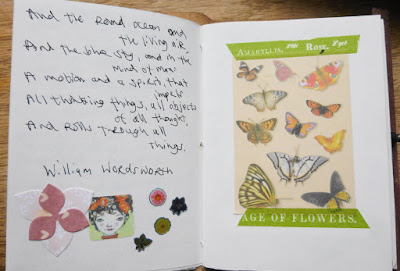 And the round ocean and
the living air,
And the blue sky, and in the
mind of man
A motion and a spirit, that
impels
All thinking things, all objects
of all thought,
And Rolls through all
things.
William Wordsworth
AMARYLLIS, Rose,
AGE OF FLOWERS.